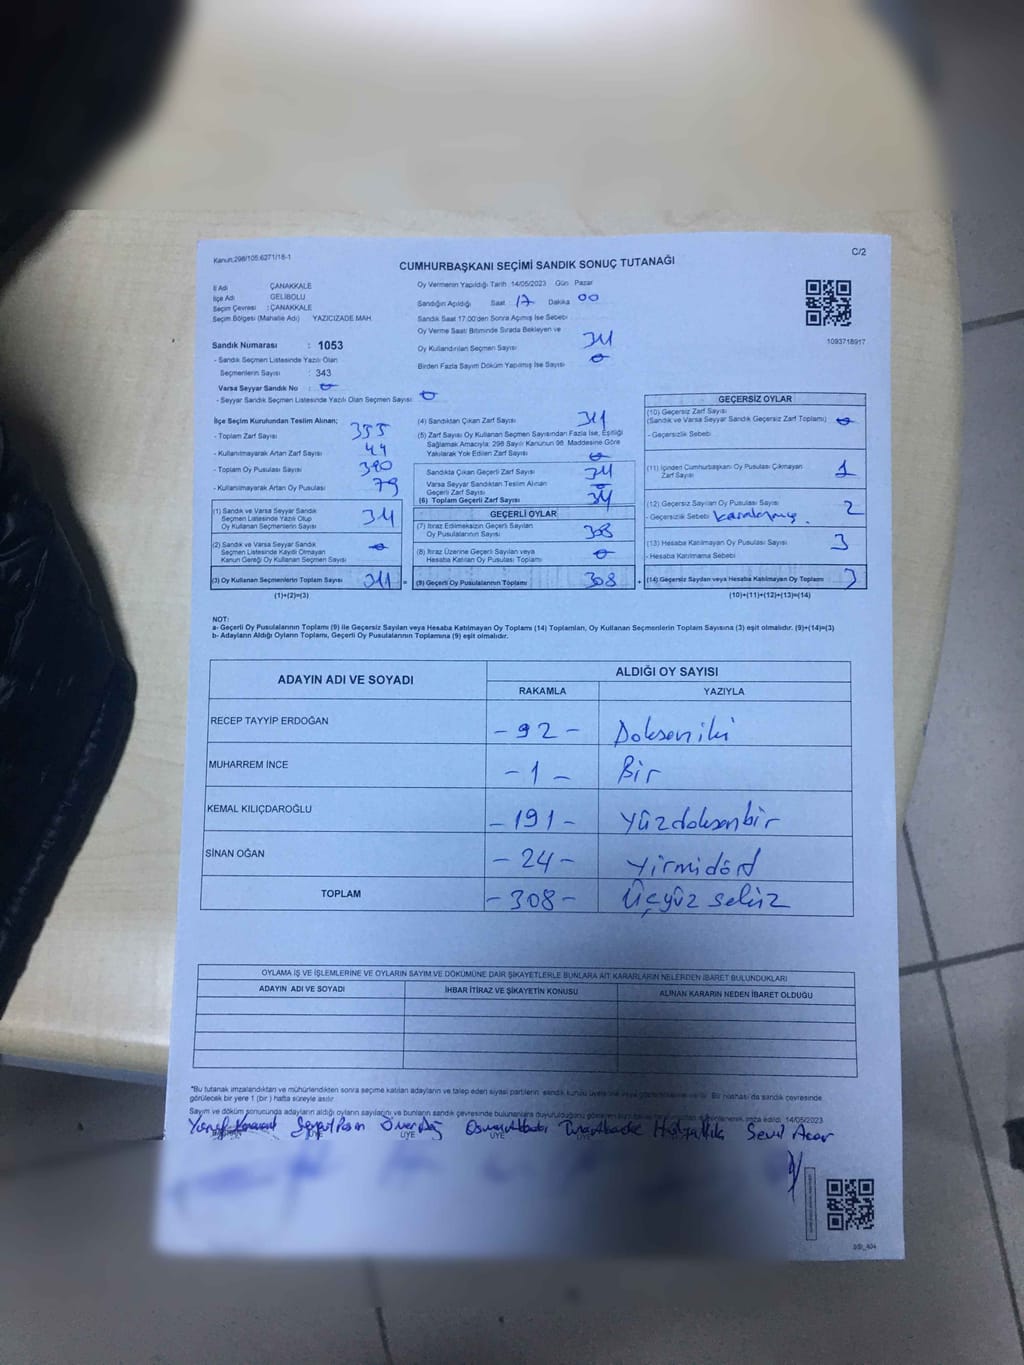 Kanun;298/105;6271/18-1
C/2
CUMHURBAŞKANI SEÇİMİ SANDIK SONUÇ TUTANAĞI
İl Adı ÇANAKKALE
İlçe Adı GELİBOLU
Seçim Çevresi : ÇANAKKALE
Seçim Bölgesi (Mahalle Adı) YAZICIZADE MAH.
Sandık Numarası : 1053
- Sandık Seçmen Listesinde Yazılı Olan
Seçmenlerin Sayısı : 343
Varsa Seyyar Sandık No
- Seyyar Sandık Seçmen Listesinde Yazılı Olan Seçmen Sayısı
Oy Vermenin Yapıldığı Tarih 14/05/2023 Gün Pazar
Sandığın Açıldığı Saat 17 Dakika 00
Sandık Saat 17.00'den Sonra Açılmış İse Sebebi
Oy Verme Saati Bitiminde Sırada Bekleyen ve
Oy Kullandırılan Seçmen Sayısı
Birden Fazla Sayım Döküm Yapılmış İse Sayısı
1093718917
İlçe Seçim Kurulundan Teslim Alınan;
- Toplam Zarf Sayısı 355
- Kullanılmayarak Artan Zarf Sayısı 44
- Toplam Oy Pusulası Sayısı 390
- Kullanılmayarak Artan Oy Pusulası 79
(1) Sandık ve Varsa Seyyar Sandık
Seçmen Listesinde Yazılı Olup
Oy Kullanan Seçmenlerin Sayısı 311
(2) Sandık ve Varsa Seyyar Sandık
Seçmen Listesinde Kaydı Olmayan
Kanun Gereği Oy Kullanan Seçmen Sayısı
(3) Oy Kullanan Seçmenlerin Toplam Sayısı 311 =
(1)+(2)=(3)
(4) Sandıktan Çıkan Zarf Sayısı 311
(5) Zarf Sayısı Oy Kullanan Seçmen Sayısından Fazla İse, Eşitliği
Sağlamak Amacıyla; 298 Sayılı Kanunun 98. Maddesine Göre
Yakılarak Yok Edilen Zarf Sayısı
Sandıkta Çıkan Geçerli Zarf Sayısı 311
Varsa Seyyar Sandıktan Teslim Alınan
Geçerli Zarf Sayısı
(6) Toplam Geçerli Zarf Sayısı 311
GEÇERLİ OYLAR
(7) İtiraz Edilmeksizin Geçerli Sayılan
Oy Pusulasının Sayısı 308
(8) İtiraz Üzerine Geçerli Sayılan veya
Hesaba Katılan Oy Pusulası Toplamı
(9) Geçerli Oy Pusulalarının Toplamı 308 +
GEÇERSİZ OYLAR
(10) Geçersiz Zarf Sayısı
(Sandık ve Varsa Seyyar Sandık Geçersiz Zarf Toplamı)
- Geçersizlik Sebebi
(11) İçinden Cumhurbaşkanı Oy Pusulası Çıkmayan
Zarf Sayısı 1
(12) Geçersiz Sayılan Oy Pusulası Sayısı 2
- Geçersizlik Sebebi karalanmış.
(13) Hesaba Katılmayan Oy Pusulası Sayısı 3
- Hesaba Katılmama Sebebi
(14) Geçersiz Sayılan veya Hesaba Katılmayan Oy Toplamı 3
(10)+(11)+(12)+(13)=(14)
NOT:
a- Geçerli Oy Pusulalarının Toplamı (9) ile Geçersiz Sayılan veya Hesaba Katılmayan Oy Toplamı (14) Toplamları, Oy Kullanan Seçmenlerin Toplam Sayısına (3) eşit olmalıdır. (9)+(14)=(3)
b- Adayların Aldığı Oyların Toplamı, Geçerli Oy Pusulalarının Toplamına (9) eşit olmalıdır.
ADAYIN ADI VE SOYADI ALDIĞI OY SAYISI
RAKAMLA YAZIYLA
RECEP TAYYİP ERDOĞAN -92- Doksaniki
MUHARREM İNCE -1- Bir
KEMAL KILIÇDAROĞLU -191- Yüzdoksanbir
SİNAN OĞAN -24- Yirmidört
TOPLAM -308- Üçyüz sekiz
OYLAMA İŞ VE İŞLEMLERİNE VE OYLARIN SAYIM VE DÖKÜMÜNE DAİR ŞİKAYETLERLE BUNLARA AİT KARARLARIN NELERDEN İBARET BULUNDUKLARI
ADAYIN ADI VE SOYADI İHBAR İTİRAZ VE ŞİKAYETİN KONUSU ALINAN KARARIN NEDEN İBARET OLDUĞU
*Bu tutanak imzalandıktan ve mühürlendikten sonra seçime katılan adayların ve talep eden siyasi partilerin sandık kurulu Bir nüshası da sandık çevresinde
görülecek bir yere 1 (bir) hafta süreyle asılır.
Sayım ve döküm sonucunda adayların aldığı oyların sayılarını ve bunların sandık çevresinde bulunanlara duyurulduğunu imza edildi. 14/05/2023
Önerdağ Sevil Acar
ÜYE ÜYE ÜYE ÜYE